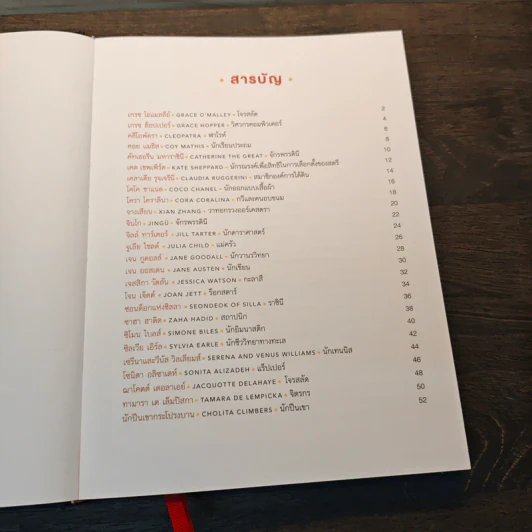 • สารบัญ •
เกรซ โอแมลลีย์ • GRACE O'MALLEY • โจรสลัด 2
เกรซ ฮ็อปเปอร์ • GRACE HOPPER • วิศวกรคอมพิวเตอร์ 4
คลีโอพัตรา • CLEOPATRA • ฟาโรห์ 6
คอย แมธิส • COY MATHIS • นักเรียนประถม 8
คัทเธอรีน มหาราชินี • CATHERINE THE GREAT • จักรพรรดินี 10
เคต เชพเพิร์ด • KATE SHEPPARD • นักรณรงค์เพื่อสิทธิในการเลือกตั้งของสตรี 12
เคลาเดีย รุจเจรีนี • CLAUDIA RUGGERINI • สมาชิกองค์การใต้ดิน 14
โคโค ชาแนล • COCO CHANEL • นักออกแบบเสื้อผ้า 16
โครา โคราลีนา • CORA CORALINA • กวีและคนอบขนม 18
จางเสียน • XIAN ZHANG • วาทยกรวงออร์เคสตรา 20
จินโก • JINGŪ • จักรพรรดินี 22
จิลล์ ทาร์เตอร์ • JILL TARTER • นักดาราศาสตร์ 24
จูเลีย ไชลด์ • JULIA CHILD • แม่ครัว 26
เจน กูดอลล์ • JANE GOODALL • นักวานรวิทยา 28
เจน ออสเตน • JANE AUSTEN • นักเขียน 30
เจสสิกา วัตสัน • JESSICA WATSON • กะลาสี 32
โจน เจ็ตต์ • JOAN JETT • ร็อกสตาร์ 34
ซอนด็อกแห่งชิลลา • SEONDEOK OF SILLA • ราชินี 36
ซาฮา ฮาดิด • ZAHA HADID • สถาปนิก 38
ซิโมน ไบลส์ • SIMONE BILES • นักยิมนาสติก 40
ซิลเวีย เอิร์ล • SYLVIA EARLE • นักชีววิทยาทางทะเล 42
เซรีนาและวีนัส วิลเลียมส์ • SERENA AND VENUS WILLIAMS • นักเทนนิส 44
โซนิตา อลิซาเดห์ • SONITA ALIZADEH • แร็ปเปอร์ 46
ฌาโคตต์ เดอลาเอย์ • JACQUOTTE DELAHAYE • โจรสลัด 48
ทามารา เด เล็มปิสกา • TAMARA DE LEMPICKA • จิตรกร 50
นักปีนเขากระโปรงบาน • CHOLITA CLIMBERS • นักปีนเขา 52